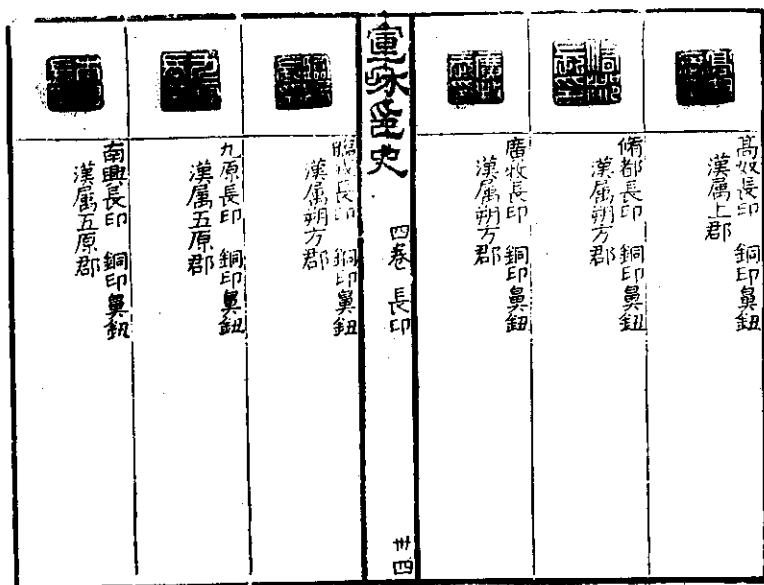 高奴長印 銅印鼻鈕
漢属上郡
脩都長印 銅印鼻鈕
漢属朔方郡
廣牧長印 銅印鼻鈕
漢属朔方郡
宣和印史 四卷 長印 卅四
臨戎長印 銅印鼻鈕
漢属朔方郡
九原長印 銅印鼻鈕
漢属五原郡
南興長印 銅印鼻鈕
漢属五原郡